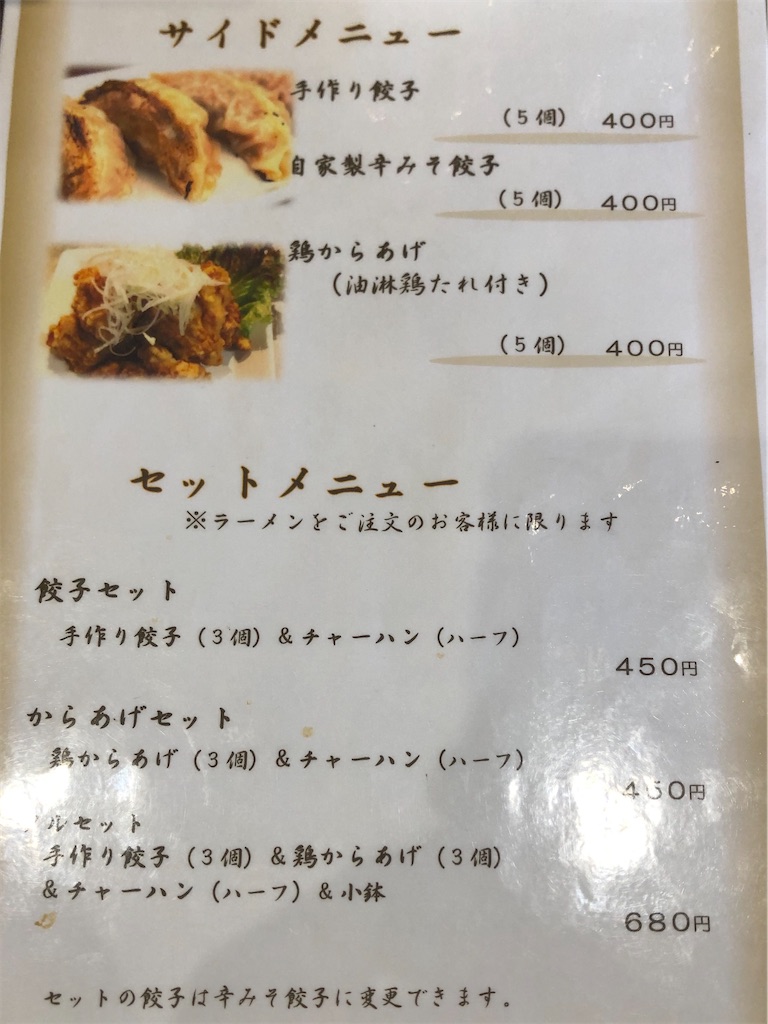 サイドメニュー
手作り餃子
(5個) 400円
自家製辛みそ餃子
(5個) 400円
鶏からあげ
(油淋鶏たれ付き)
(5個) 400円
セットメニュー
※ラーメンをご注文のお客様に限ります
餃子セット
手作り餃子(3個)&チャーハン(ハーフ)
450円
からあげセット
鶏からあげ(3個)&チャーハン(ハーフ)
450円
ルセット
手作り餃子(3個)&鶏からあげ(3個)
&チャーハン(ハーフ)&小鉢
680円
セットの餃子は辛みそ餃子に変更できます。